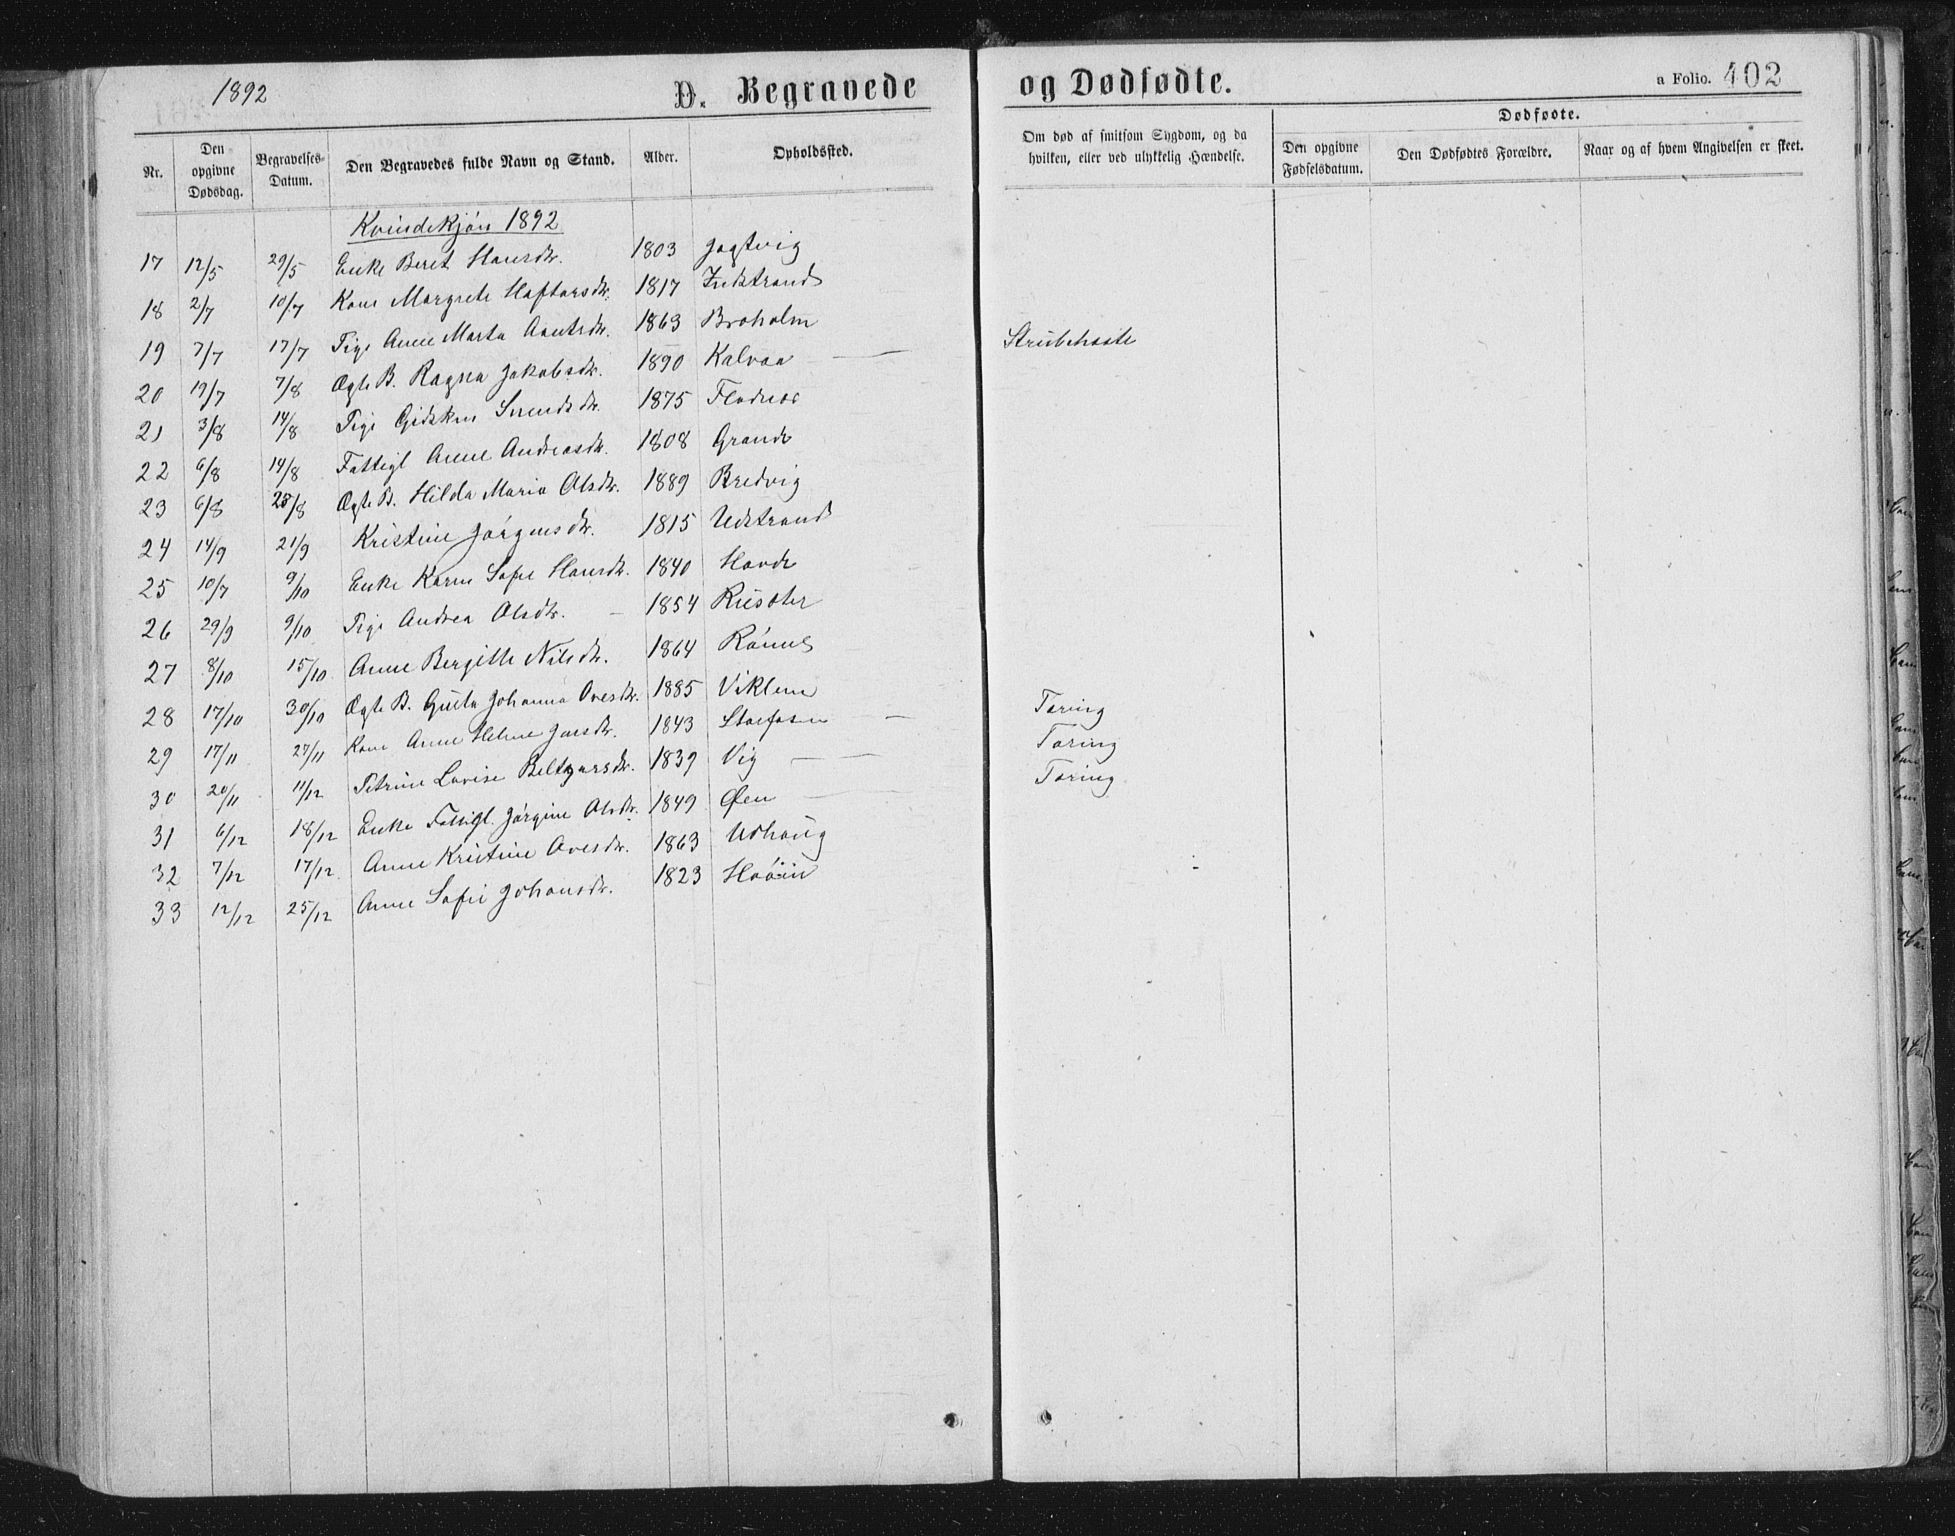 1892 D. Begravede og Dødfødte. a Folio. 402
Nr. Den opgivne Dødsdag. Begravelses-Datum. Den Begravedes fulde Navn og Stand. Alder. Opholdssted. Om død af smitsom Sygdom, og da hvilken, eller ved ulykkelig Hændelse. Dødfødte. Den opgivne Fødselsdatum. Den Dødfødtes Forældre. Naar og af hvem Angivelsen er skeet.
Kvindekjøn 1892
17 12/5 29/5 Enke Beret Hansdtr. 1803 Jøgtvig
18 2/7 10/7 Kone Margrete Haftorsdtr. 1817 Indstrand
19 7/7 17/7 Pige Anne Marta Arntsdtr. 1863 Broholm
20 19/7 7/8 Ægte B. Ragna Jakobsdtr. 1890 Kalvaa — — Strubehoste
21 3/8 14/8 Pige Gidsken 1875 Flodnes
22 6/8 14/8 Fattigl Anne Andreasdtr. 1808 Grande
23 6/8 /8 Ægte B. Hilda Maria Olsdtr. 1889 Bredvig
24 14/9 21/9 Kristine Jørgensdtr. 1815 Udstrand
25 10/7 9/10 Enke Karen Sofie Hansdtr. 1840 Hovde
26 29/9 9/10 Pige Andrea Olsdtr. — 1854
27 8/10 15/10 Anne Bergitte Nilsdtr. 1864 Rönne
28 17/10 30/10 Ægte B. Johanna Ovesdtr. 1885 Viklem
29 17/11 27/11 Kone Anne Helene Jensdtr. 1843 Storfosen — Tæring
30 20/11 11/12 Petrine Lovise Beltzarsdtr. 1839 Vig — — Tæring
31 6/12 18/12 Enke Fattigl. Jørgine Olsdtr. 1849 Øen — — Tæring
32 7/12 17/12 Anne Kristine Ovesdtr. 1863 Udhaug
33 12/12 25/12 Anne Sofie Johansdtr. 1823 Hoöien